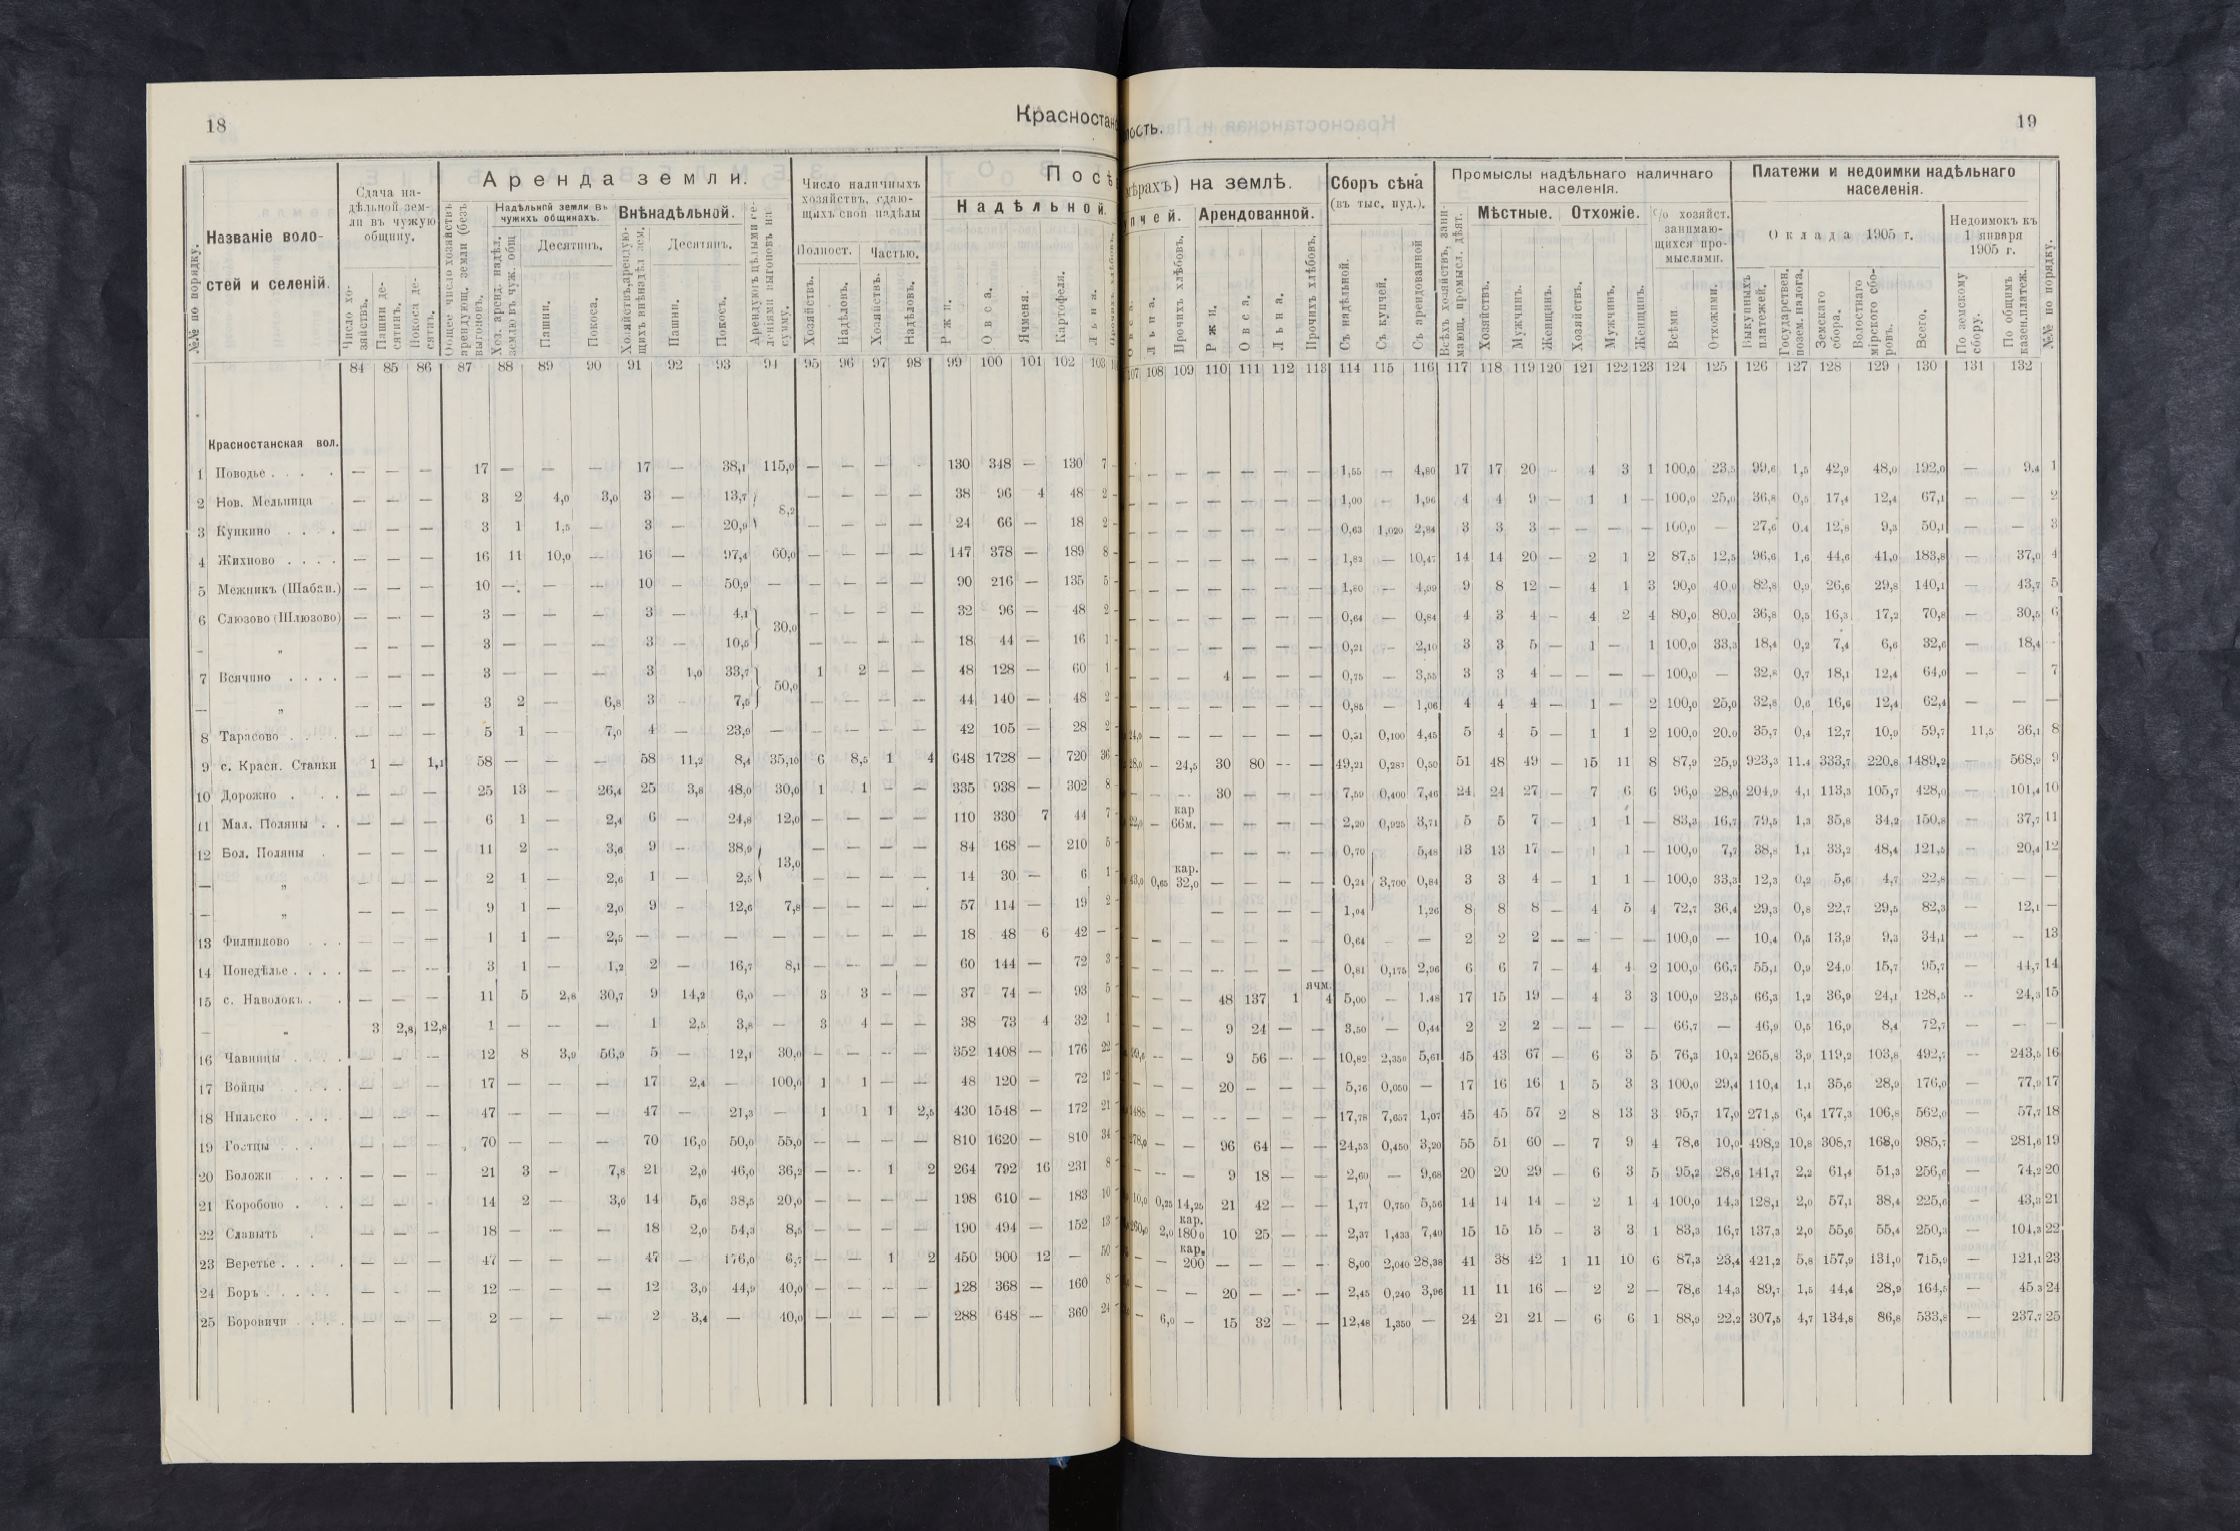 18
Красностан
ность.
19
№№ по порядку.
Названіе воло-
стей и селеній.
Сдача на-
дѣльной зем-
ли въ чужую
общину.
Число хо-
зяйствъ.
Пашни де-
сятинъ.
Покоса де-
сятинъ.
Аренда земли.
Общее число хозяйствъ
арендующ. земли (безъ
выгоновъ.
Надѣльной земли въ
чужихъ общинахъ.
Хоз. аренд. надѣл.
землю въ чуж. общ.
Десятинъ.
Пашни.
Покоса.
Внѣнадѣльной.
Хозяйствъ, арендую-
щихъ внѣнадѣл зем.
Десятинъ.
Пашни.
Покосъ.
Арендуютъ цѣлыми се-
леніями выгоновъ на
сумму.
Число наличныхъ
хозяйствъ, сдаю-
щихъ свои надѣлы
Полност.
Частью.
Хозяйствъ.
Надѣловъ.
Хозяйствъ.
Надѣловъ.
Посѣ
Надѣльной.
Ржи.
Овса.
Ячменя.
Картофеля.
Льна.
мѣрахъ) на землѣ.
пчей.
Льна.
Прочихъ хлѣбовъ.
Арендованной.
Ржи.
Овса.
Льна.
Прочихъ хлѣбовъ.
Сборъ сѣна
(въ тыс. пуд.).
Съ надѣльной.
Съ купчей.
Съ арендованной
Промыслы надѣльнаго наличнаго
населенія.
Всѣхъ хозяйствъ, зани-
мающ. промысл. дѣят.
Мѣстные.
Хозяйствъ.
Мужчинъ.
Женщинъ.
Отхожіе.
Хозяйствъ.
Мужчинъ.
Женщинъ.
% хозяйст.
занимаю-
щихся про-
мыслами.
Всѣми.
Отхожими.
Платежи и недоимки надѣльнаго
населенія.
Оклада 1905 г.
Выкупныхъ
платежей.
Государствен.
позем. налога.
Земскаго
сбора.
Волостнаго
мірского сбо-
ровъ.
Всего.
Недоимокъ къ
1 января
1905 г.
По земскому
сбору.
По общимъ
казен. платеж.
№№ по порядку.
84 85 86 87 88 89 90 91 92 93 94 95 96 97 98 99 100 101 102 103
107 108 109 110 111 112 113 114 115 116 117 118 119 120 121 122 123 124 125 126 127 128 129 130 131 132
Красностанская вол.
1 Поводье . . . . — — — 17 — — — 17 — 38,1 115,0 — — — - 130 348 — 130 7
— — — — — — 1,55 — 4,80 17 17 20 - 4 3 1 100,0 23,5 99,6 1,5 42,9 48,0 192,0 — 9,4 1
2 Нов. Мельница — — — 3 2 4,0 3,0 3 — 13,7 8,2 — — — — 38 96 4 48 2
— — — — — — 1,00 - 1,96 4 4 9 — 1 1 — 100,0 25,0 36,8 0,5 17,4 12,4 67,1 — — 2
3 Кункино . . . — — — 3 1 1,5 — 3 — 20,9 — — — — 24 66 — 18 2
— — — — — — 0,63 1,020 2,84 3 3 3 — — — — 100,0 — 27,6 0,4 12,8 9,3 50,1 — — 3
4 Жихново . . . . — — — 16 11 10,0 — 16 — 97,4 60,0 — — — — 147 378 — 189 8
— — — — — — 1,82 — 10,47 14 14 20 — 2 1 2 87,5 12,5 96,6 1,6 44,6 41,0 183,8 — 37,0 4
5 Межникъ (Шабан.) — — — 10 — — — 10 — 50,9 — — — — — 90 216 — 135 5
— — — — — — 1,80 — 4,99 9 8 12 — 4 1 3 90,0 40,0 82,8 0,9 26,6 29,8 140,1 — 43,7 5
6 Слюзово (Шлюзово) — — — 3 — — — 3 — 4,1 30,0 — — — — 32 96 — 48 2
— — — — — — 0,64 — 0,84 4 3 4 — 4 2 4 80,0 80,0 36,8 0,5 16,3 17,2 70,8 — 30,5 6
— „ — — — 3 — — — 3 — 10,5 — — — — 18 44 — 16 1
— — — — — — 0,21 — 2,10 3 3 5 — 1 — 1 100,0 33,3 18,4 0,2 7,4 6,6 32,6 — 18,4
7 Всячино . . . . — — — 3 — — — 3 1,0 33,7 50,0 1 2 — — 48 128 — 60 1
— — — 4 — — — 0,75 — 3,55 3 3 4 — — — — 100,0 — 32,8 0,7 18,1 12,4 64,0 — — 7
— „ — — — 3 2 — 6,8 3 7,5 — — — — 44 140 — 48 2
— — — — — — 0,85 — 1,06 4 4 4 — 1 — 2 100,0 25,0 32,8 0,6 16,6 12,4 62,4 — — —
8 Тарасово . . . — — — 5 1 — 7,0 4 — 23,9 — — — — — 42 105 — 28 2
24,0 — — — — — — 0,51 0,100 4,45 5 4 5 — 1 1 2 100,0 20,0 35,7 0,4 12,7 10,9 59,7 11,5 36,1 8
9 с. Красн. Станки 1 — 1,1 58 — — — 58 11,2 8,4 35,10 6 8,5 1 4 648 1728 — 720 36
28,0 — 24,5 30 80 — — 49,21 0,287 0,50 51 48 49 — 15 11 8 87,9 25,9 923,3 11,4 333,7 220,8 1489,2 — 568,9 9
10 Дорожно . . . — — — 25 13 — 26,4 25 3,8 48,0 30,0 1 1 — — 335 938 — 302 8
— — 30 — — — 7,59 0,400 7,46 24 24 27 — 7 6 6 96,0 28,0 204,9 4,1 113,3 105,7 428,0 — 101,4 10
11 Мал. Поляны . . — — — 6 1 — 2,4 6 — 24,8 12,0 — — — — 110 330 7 44 7
22,0 — кар 66м. — — — — 2,20 0,925 3,71 5 5 7 — 1 1 — 83,3 16,7 79,5 1,3 35,8 34,2 150,8 — 37,7 11
12 Бол. Поляны . — — — 11 2 — 3,6 9 — 38,9 13,0 — — — — 84 168 — 210 5
— — — — 0,70 5,48 13 13 17 — 1 1 — 100,0 7,7 38,8 1,1 33,2 48,4 121,5 — 20,4 12
— „ — — — 2 1 — 2,6 1 — 2,5 — — — — 14 30 — 6 1
43,0 0,65 кар. 32,0 — — — — 0,24 3,700 0,84 3 3 4 — 1 1 — 100,0 33,3 12,3 0,2 5,6 4,7 22,8 — — —
— „ — — — 9 1 — 2,0 9 - 12,6 7,8 — — — — 57 114 — 19 2
— — — — 1,04 1,26 8 8 8 — 4 5 4 72,7 36,4 29,3 0,8 22,7 29,5 82,3 — 12,1 —
13 Филипково . . . — — — 1 1 — 2,5 — — — — — — — — 18 48 6 42 —
— — — — — — 0,64 — — 2 2 2 — — — — 100,0 — 10,4 0,5 13,9 9,3 34,1 — — 13
14 Понедѣлье . . . . — — — 3 1 — 1,2 2 — 16,7 8,1 — — — — 60 144 — 72 3
— — — — — — 0,81 0,175 2,96 6 6 7 — 4 4 2 100,0 66,7 55,1 0,9 24,0 15,7 95,7 — 44,7 14
15 с. Наволокъ . . — — — 11 5 2,8 30,7 9 14,2 6,0 — 3 3 — — 37 74 — 93 5
— — — 48 137 1 ячм. 4 5,00 — 1,48 17 15 19 — 4 3 3 100,0 23,5 66,3 1,2 36,9 24,1 128,5 — 24,3 15
— „ 3 2,8 12,8 1 — — — 1 2,5 3,8 — 3 4 — — 38 73 4 32 1
— — — 9 24 — — 3,50 — 0,44 2 2 2 — — — — 66,7 — 46,9 0,5 16,9 8,4 72,7 — — —
16 Чавницы . . . . — — — 12 8 3,9 56,9 5 — 12,1 30,0 — — — — 352 1408 — 176 22
— — 9 56 — — 10,82 2,350 5,61 45 43 67 — 6 3 5 76,3 10,2 265,8 3,9 119,2 103,8 492,7 — 243,5 16
17 Войцы . . . . . — — — 17 — — — 17 2,4 — 100,0 1 1 — — 48 120 — 72 12
— — — 20 — — — 5,76 0,050 — 17 16 16 1 5 3 3 100,0 29,4 110,4 1,1 35,6 28,9 176,0 — 77,9 17
18 Нильско . . . . — — — 47 — — — 47 — 21,3 — 1 1 1 2,5 430 1548 — 172 21
— — — — — — 17,78 7,657 1,07 45 45 57 2 8 13 3 95,7 17,0 271,5 6,4 177,3 106,8 562,0 — 57,7 18
19 Гостцы . . . — — — 70 — — — 70 16,0 50,0 55,0 — — — — 810 1620 — 810 34
278,0 — — 96 64 — — 24,53 0,450 3,20 55 51 60 — 7 9 4 78,6 10,0 498,2 10,8 308,7 168,0 985,7 — 281,6 19
20 Боложи . . . . — — — 21 3 — 7,8 21 2,0 46,0 36,2 — — 1 2 264 792 16 231 8
— — — 9 18 — — 2,60 — 9,68 20 20 29 — 6 3 5 95,2 28,6 141,7 2,2 61,4 51,3 256,6 — 74,2 20
21 Коробово . . . — — - 14 2 — 3,6 14 5,6 38,5 20,0 — — — — 198 610 — 183 10
10,0 0,25 14,25 21 42 — — 1,77 0,750 5,56 14 14 14 — 2 1 4 100,0 14,3 128,1 2,0 57,1 38,4 225,6 — 43,3 21
22 Славыть . — — — 18 — — — 18 2,0 54,3 8,5 — — — — 190 494 — 152 13
260,0 2,0 кар. 180 0 10 25 — — 2,37 1,433 7,40 15 15 15 — 3 3 1 83,3 16,7 137,3 2,0 55,6 55,4 250,3 — 104,3 22
23 Веретье . . . . — — — 47 — — — 47 — 176,0 6,7 — — 1 2 450 900 12 — 50
— — кар. 200 — — — — 8,00 2,040 28,38 41 38 42 1 11 10 6 87,3 23,4 421,2 5,8 157,9 131,0 715,9 — 121,1 23
24 Боръ . . . . . — — — 12 — — — 12 3,0 44,9 40,0 — — — — 128 368 — 160 8
— — — 20 — — — 2,45 0,240 3,96 11 11 16 — 2 2 — 78,6 14,3 89,7 1,5 44,4 28,9 164,5 — 45,3 24
25 Боровичи . . . . — — — 2 — — — 2 3,4 — 40,0 — — — — 288 648 — 360 24
— 6,0 — 15 32 — — 12,48 1,350 — 24 21 21 — 6 6 1 88,9 22,2 307,5 4,7 134,8 86,8 533,8 — 237,7 25